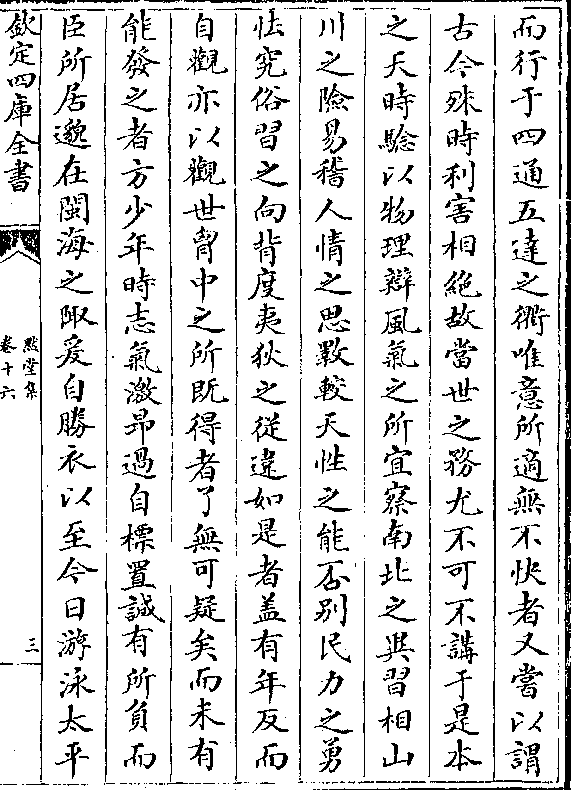 而行于四通五達之衢唯意所適無不快者又嘗以謂
古今殊時利害相絶故當世之務尤不可不講于是本
之天時驗以物理辯風氣之所宜察南北之異習相山
川之險易稽人情之思數較天性之能否别民力之勇
怯究俗習之向背度夷狄之從違如是者盖有年反而
自觀亦以觀世胷中之所既得者了無可疑矣而未有
能發之者方少年時志氣激昂過自標置誠有所負而
臣所居邈在閩海之陬爰自勝衣以至今日游泳太平
欽定四庫全書
默堂集
卷十六
三